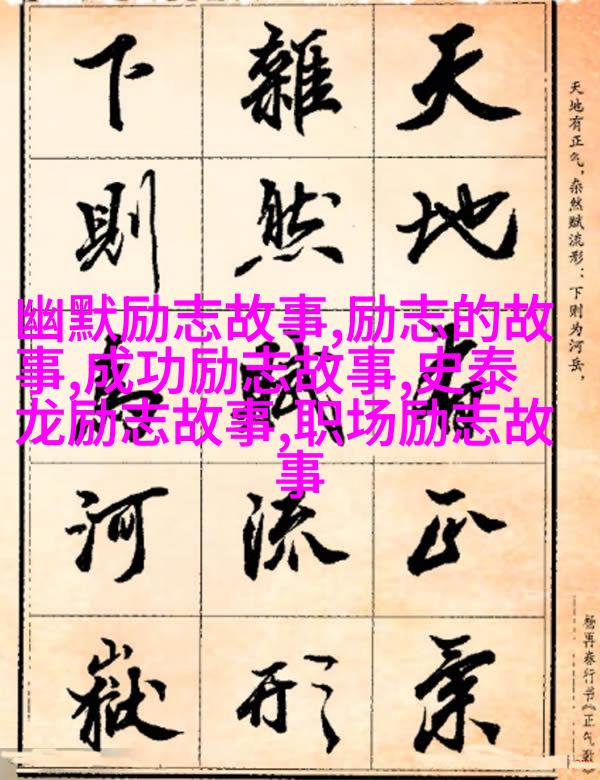 幽默励志故事,励志的故
事,成功励志故事,史泰
龙励志故事,职场励志故
事
天地有正气，杂然赋流形：下则为河岳，
天地有正氣
雜然賦流形
下則為河嶽
杨再春行书《正气歌》